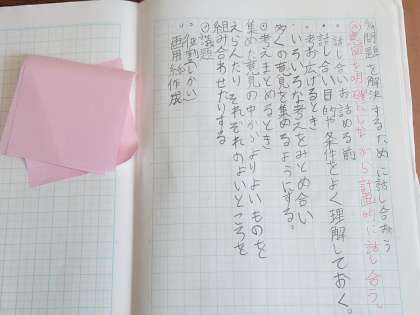 問題を解決するために話し合おう
意図を明確にしながら計画的に話し合う。
・話し合いお詰める前
話し合い目的や条件をよく理解しておく。
・考お広げるとき
いろいろな考えをみとめ合い
多くの意見を集めるようにする。
考えまとめるとき
集めた意見の中からよりよいものを
えらんだり、それぞれのよいところを
組み合わせたりする
議題
画用紙作成